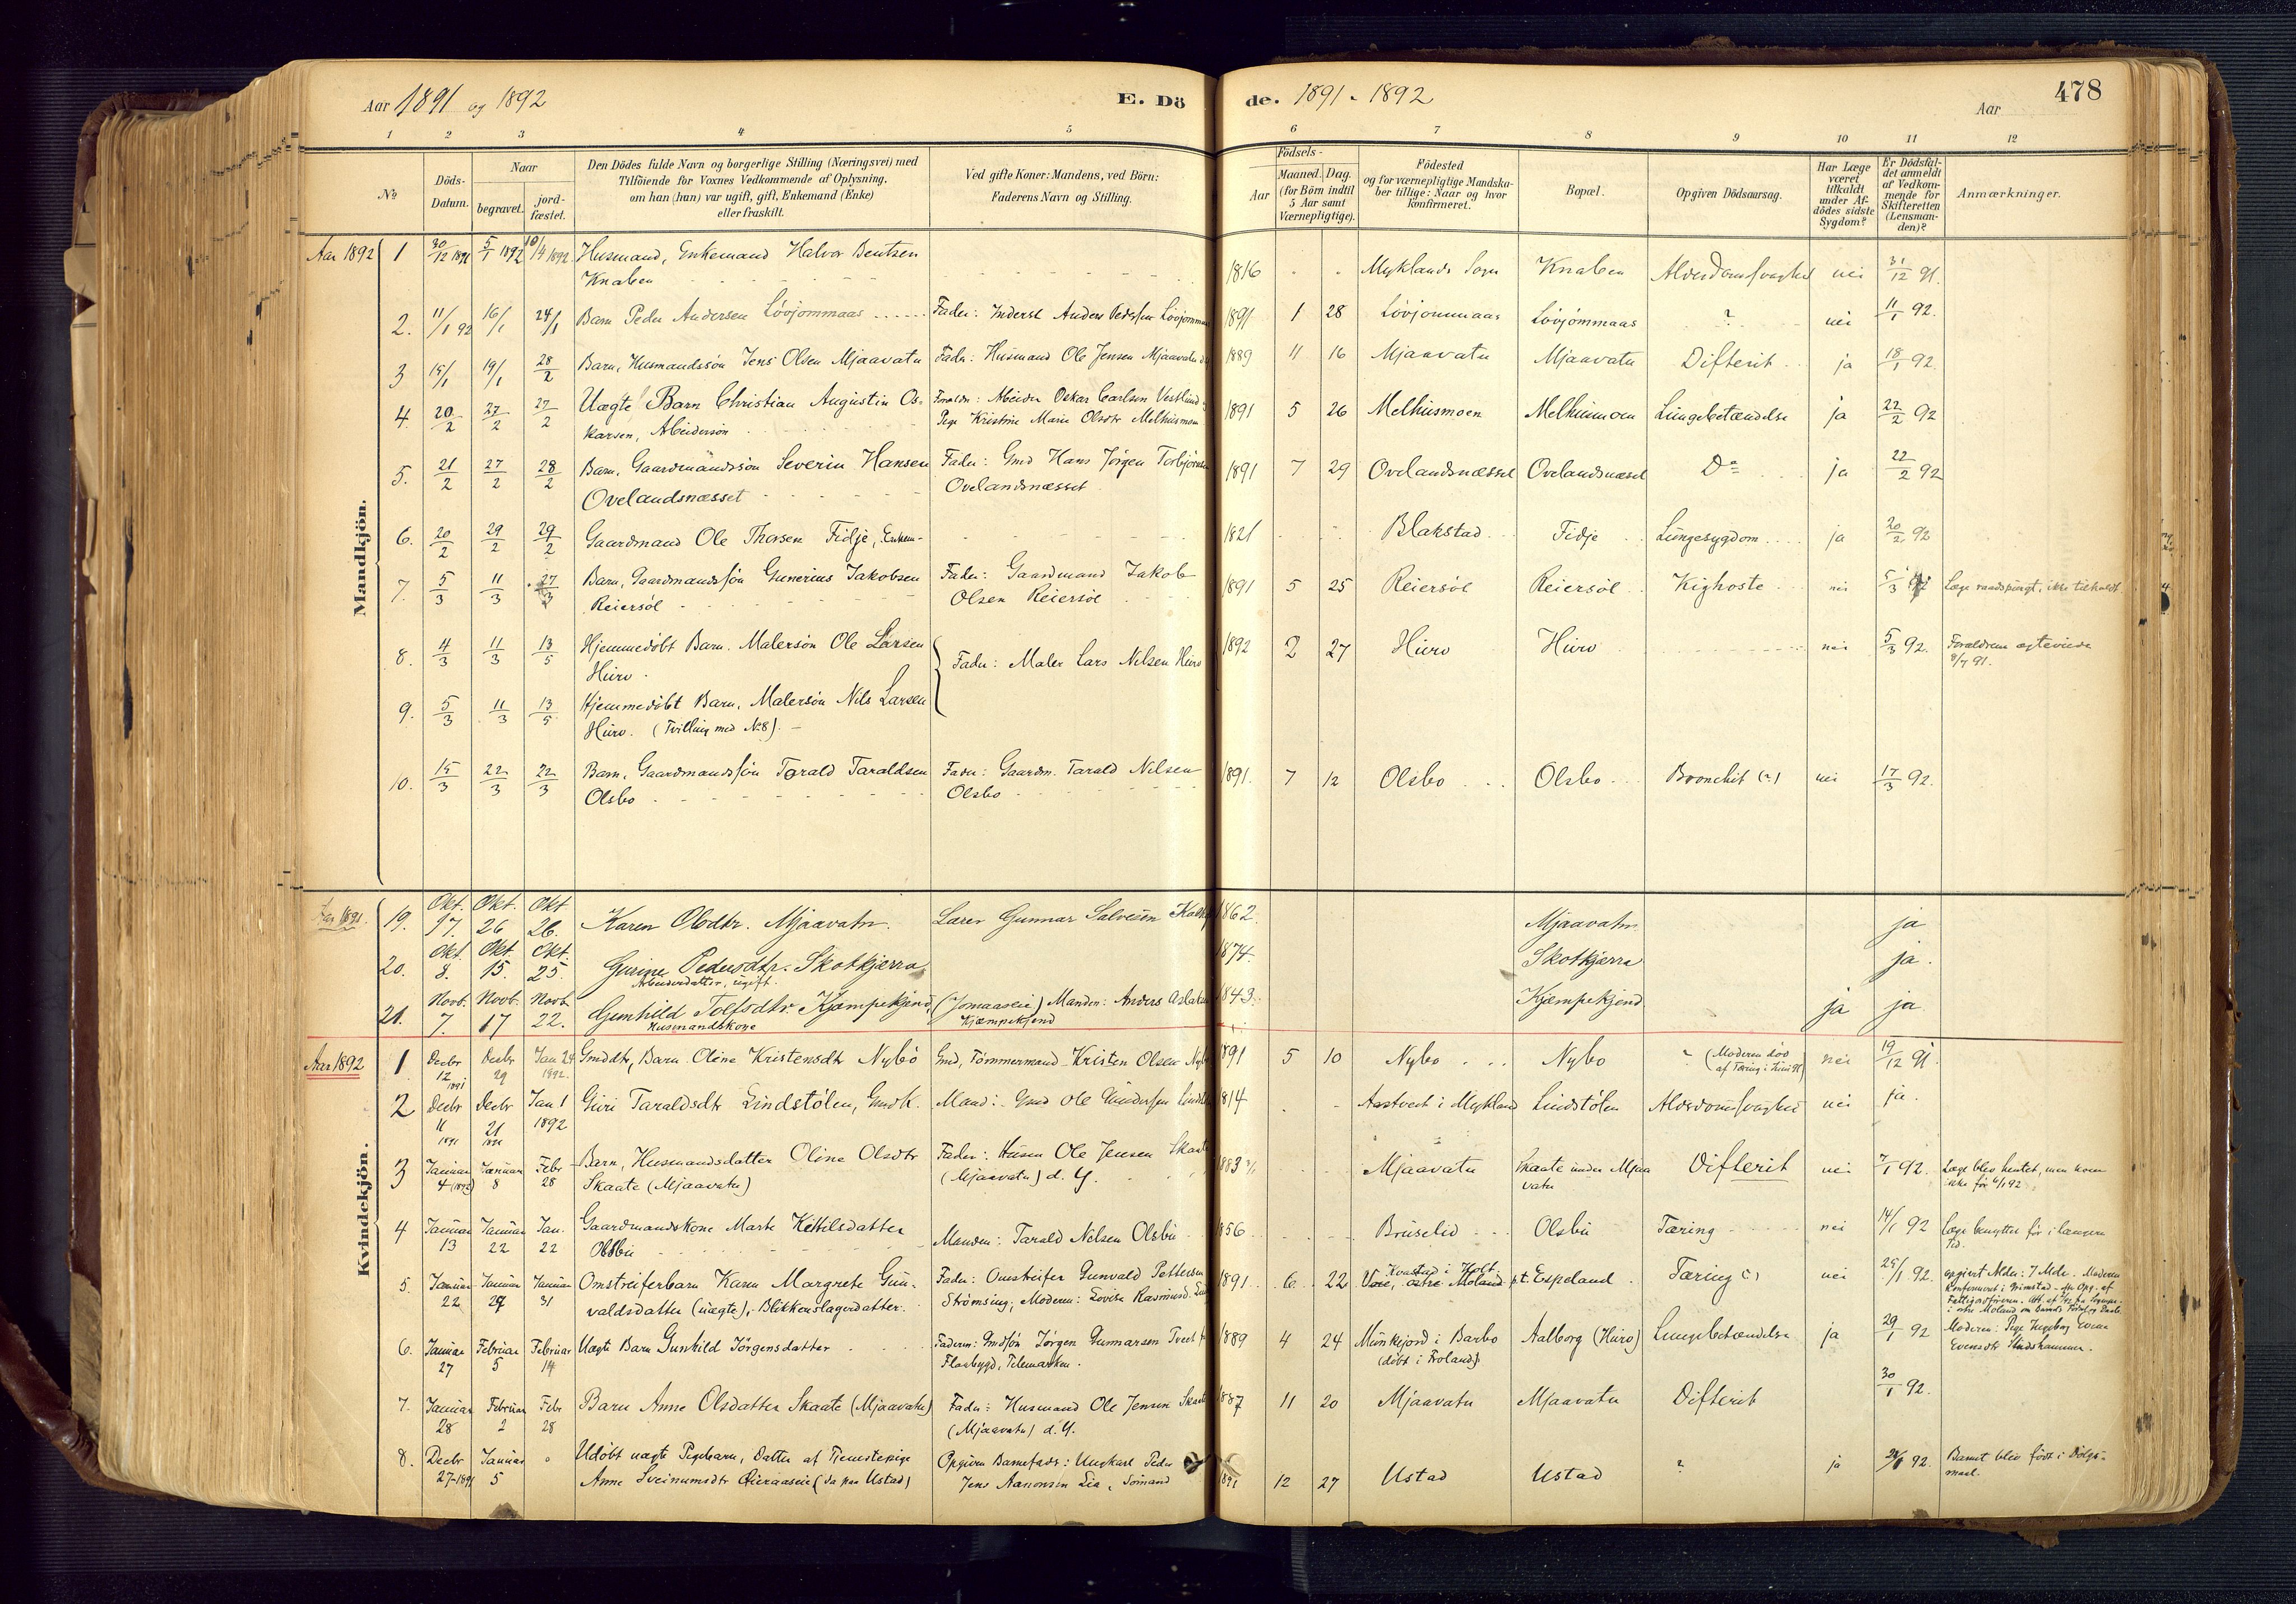 Aar 1891 og 1892
E. Dö
de. 1891 - 1892
Aar
478
1 2 3 4 5 6 7 8 9 10 11 12
№
Döds-Datum.
Naar
begravet.
jord-fæstet.
Den Dödes fulde Navn og borgerlige Stilling (Næringsvei) med
Tilföiende for Voxnes Vedkommende af Oplysning,
om han (hun) var ugift, gift, Enkemand (Enke)
eller fraskilt.
Ved gifte Koner: Mandens, ved Börn:
Faderens Navn og Stilling.
Födsels-
Aar
Maaned. Dag.
(for Börn indtil
5 Aar samt
Værnepligtige).
Födested
og for værnepligtige Mandska-
ber tillige: Naar og hvor
konfirmeret.
Bopæl.
Opgiven Dödsaarsag.
Har Læge
været
tilkaldt
under Af-
dödes sidste
Sygdom?
Er Dödsfal-
det anmeldt
af Vedkom-
mende for
Skifteretten
(Lensman-
den)?
Anmærkninger.
Mandkjön.
Aar 1892 1 30/12 1891 5/1 1892 10/4 1892 Husmand, Enkemand Halvor Bentsen 1816 Myklands Sogn Knaben Alderdomsvaghed nei 31/12 91.
Knaben
2. 11/1 92 16/1 24/1 Barn Peder Andersen Lövjommaas Fader: Inderst Anders Pedersen Lövjommaas 1891 1 28 Lövjommaas Lövjömmaas ? nei 11/1 92.
3 15/1 19/1 28/2 Barn, Husmandssön Jens Olsen Mjaavatn Fader: Husmand Ole Jensen Mjaavatn 1889 11 16 Mjaavatn Mjaavatn Difterit ja 18/1 92.
4. 20/2 27/2 27/2 Uægte Barn Christian Augustin Os- Forældre: Arbeider Oskar Carlsen Vestlund 1891 5 26 Melhusmoen Melhusmoen Lungebetændelse ja 22/2 92
karsen, Arbeidersön Pige Kristine Marie Olsdtr Melhusmoen
5. 21/2 27/2 28/2 Barn, Gaardmandssön Severin Hansen Fader: Gmd Hans Jörgen Torbjörnsen 1891 7 29 Ovelandsnæsset Ovelandsnæsset Do ja 22/2 92
Ovelandsnæsset Ovelandsnæsset
6. 20/2 29/2 29/2 Gaardmand Ole Thorsen Fidje, Enkem- 1821 Blakstad Fidje Lungesygdom ja 20/2 92
7. 5/3 11/3 27/3 Barn, Gaardmandssön Gunerius Jakobsen Fader: Gaardmand Jakob 1891 5 25 Reiersöl Reiersöl Kighoste nei 5/3 Læge raadspurgt, ikke tilkaldt
Reiersöl Olsen Reiersöl
8. 4/3 11/3 13/5 Hjemmedöbt Barn. Malersön Ole Larsen Fader: Maler Lars Nilsen Hüro 1892 2 27 Hüro Hüro nei 5/3 92. Forældrene ægteviede
Hüro. 8/7 91.
9. 5/3 11/3 13/5 Hjemmedöbt Barn, Malersön Nils Larsen
Hüro. (Tvilling med No 8).
10. 15/3 22/3 22/3 Barn, Gaardmandssön Tarald Taraldsen Fader: Gaardm. Tarald Nilsen 1891. 7 12 Olsbo Olsbo Bronchit (?) nei 17/3 92.
Olsbo Olsbo
Kvindekjön.
Aar 1891. 19. Okt. 17. Okt. 26 Okt 26. Karen Olsdtr. Mjaavatn. Lærer Gunnar Salvesen 1862. Mjaavatn. ja
20. Okt. 8. Okt. 15. Okt. 25. Gurine Pedersdtr. Skotkjærra 1874. Skotkjærra ja.
Arbeiderdatter, ugift.
21. Novb. 7. Novb. 17 Novb. 22. Gunhild Tolfsdtr. Kjæmpekjend, (Jomaaseie) Manden: Anders Aslaksen 1843. Kjæmpekjend ja ja.
Husmandskone Kjæmpekjend
Aar 1892 1 Decbr 12 1891 Decbr 29 Jan 24 1892. Gmddtr, Barn Oline Kristensdtr Nybö Gmd, Tömmermand Kristen Olsen Nybö 1891 5 10 Nybo Nybo ? (Moderen död nei 19/12 91.
af Tæring i Juni 91)
2 Decbr 11 1891 Decbr 21 1891 Jan 1 1892 Guri Taraldsdtr Lindstölen, Gmdk. Mand: Gmd Ole Gundersen Lindst 1814 Aastveit i Mykland Lindstölen Alderdomsvaghed nei ja.
3 Januar 4 (1892) Januar 8 Febr 28 Barn, Husmandsdatter Oline Olsdtr Fader: Husm Ole Jensen Skaate 1883 Mjaavatn Skaate under Mjaa Difterit nei 7/1 92. Læge blev hentet, men kom
Skaate (Mjaavatn) (Mjaavatn) d. Y. vatn ikke för 6/1 92
4 Januar 13 Januar 22 Jan. 22 Gaardmandskone Marte Kettelsdatter Manden: Tarald Nilsen Olsbu 1856 Bruselid Olsbu Tæring nei 14/1 92 Læge benyttet för i længere
Olsbu Tid.
5. Januar 22 Januar 27 Januar 31 Omstreiferbarn Karen Margrete Gun- Fader: Omstreifer Gunvald Pettersen 1891 6 22 Kvastad i Holt. Vore, östre Moland p.t. Espeland Tæring (?) nei 25/1 92. opgivet Alder: 7 Mdr. Moderen
valdsdatter (uægte), Blikkenslagerdatter. Strömsing; Moderen: Lovise Rasmusd. konfirmeret i Grimstad
6. Januar 27 Februar 5 Februar 14 Uægte Barn Gunhild Jörgensdatter Faderen: Gmdsön Jörgen Gunnarsen Tveit 1889 4 24 Munkejord i Barbo Aalborg (Hüro) Lungebetændelse ja 29/1 92 Moderen: Pige Ingeborg
Flaabygd, Telemarken. (döbt i Froland) Evensdtr
7. Januar 28 Februar 2 Febr 28 Barn Anne Olsdatter Skaate (Mjaavatn) Fader: Husmand Ole Jensen Skaate 1887 11 20 Mjaavatn Mjaavatn Difterit 30/1 92.
(Mjaavatn) d. Y.
8. Decbr 27-1891 Januar 5 Udöbt uægte Pigebarn, Datter af Tjenestepige Opgiven Barnefader: Ungkarl Peder 1891 12 27 Ustad Ustad ? ja 92. Barnet blev födt i Dölgs-
Anne Sveinumsdtr (da paa Ustad) Jens Aanonsen Lia, Sömand maal.